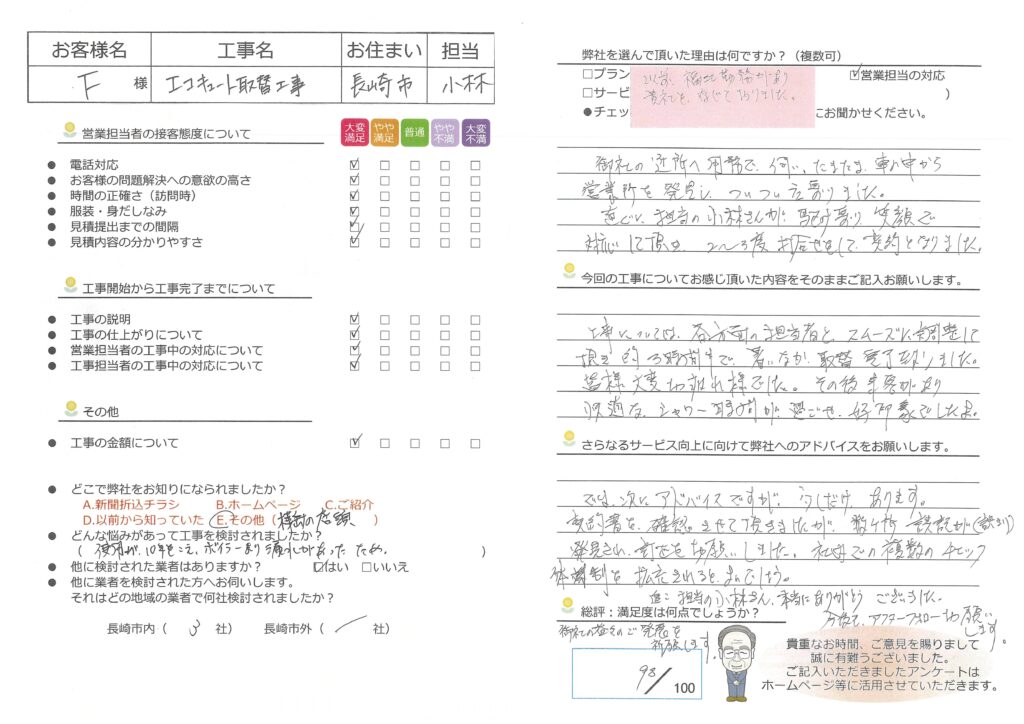 お客様名 工事名 お住まい 担当
F 様 エコキュート取替工事 長崎市 小林
営業担当者の接客態度について
大変満足 やや満足 普通 やや不満 大変不満
電話対応
お客様の問題解決への意欲の高さ
時間の正確さ(訪問時)
服装・身だしなみ
見積提出までの間隔
見積内容の分かりやすさ
工事開始から工事完了までについて
工事の説明
工事の仕上がりについて
営業担当者の工事中の対応について
工事担当者の工事中の対応について
その他
工事の金額について
どこで弊社をお知りになられましたか?
A.新聞折込チラシ B.ホームページ C.ご紹介
D.以前から知っていた E.その他( の店頭 )
どんな悩みがあって工事を検討されましたか?
( 使用が、10年をこえ、ボイラーより漏水があったため。 )
他に検討された業者はありますか? はい いいえ
他に業者を検討された方へお伺いします。
それはどの地域の業者で何社検討されましたか?
長崎市内( 3 社) 長崎市外( 社)
弊社を選んで頂いた理由は何ですか?(複数可)
プラン 営業担当の対応
サービ )
チェッ にお聞かせください。
以前、福岡勤務があり
貴社を、 ました。
御社の近所へ用務で伺い、たまたま車の中から
営業所を発見し、ついつい立寄りました。
直ぐに担当の小林さんが駆け寄り笑顔で
対応して頂き、2〜3度打合せをして、契約となりました。
今回の工事についてお感じ頂いた内容をそのままご記入お願いします。
工事については、各方面の担当者とスムーズに調整して
頂き、約3時間半で、暑いなか、取替完了を致しました。
皆様大変 様でした。その後来客があり
快適な、シャワー時間が過ごせ、好印象でしたよ。
さらなるサービス向上に向けて弊社へのアドバイスをお願いします。
では、次にアドバイスですが、少しだけあります。
契約書を、確認させて頂きましたが、数ヶ所誤記が( )
発見され、訂正をお願いしました。社内での複数のチェック
体制を拡充されると、よいでしょう。
担当の小林さん、本当にありがとうございました。
今後も、アフターフォローをお願いします。
御社の益々のご発展を
祈願します。
総評:満足度は何点でしょうか?
98/100
貴重なお時間、ご意見を賜りまして
誠に有難うございました。
ご記入いただきましたアンケートは
ホームページ等に活用させていただきます。